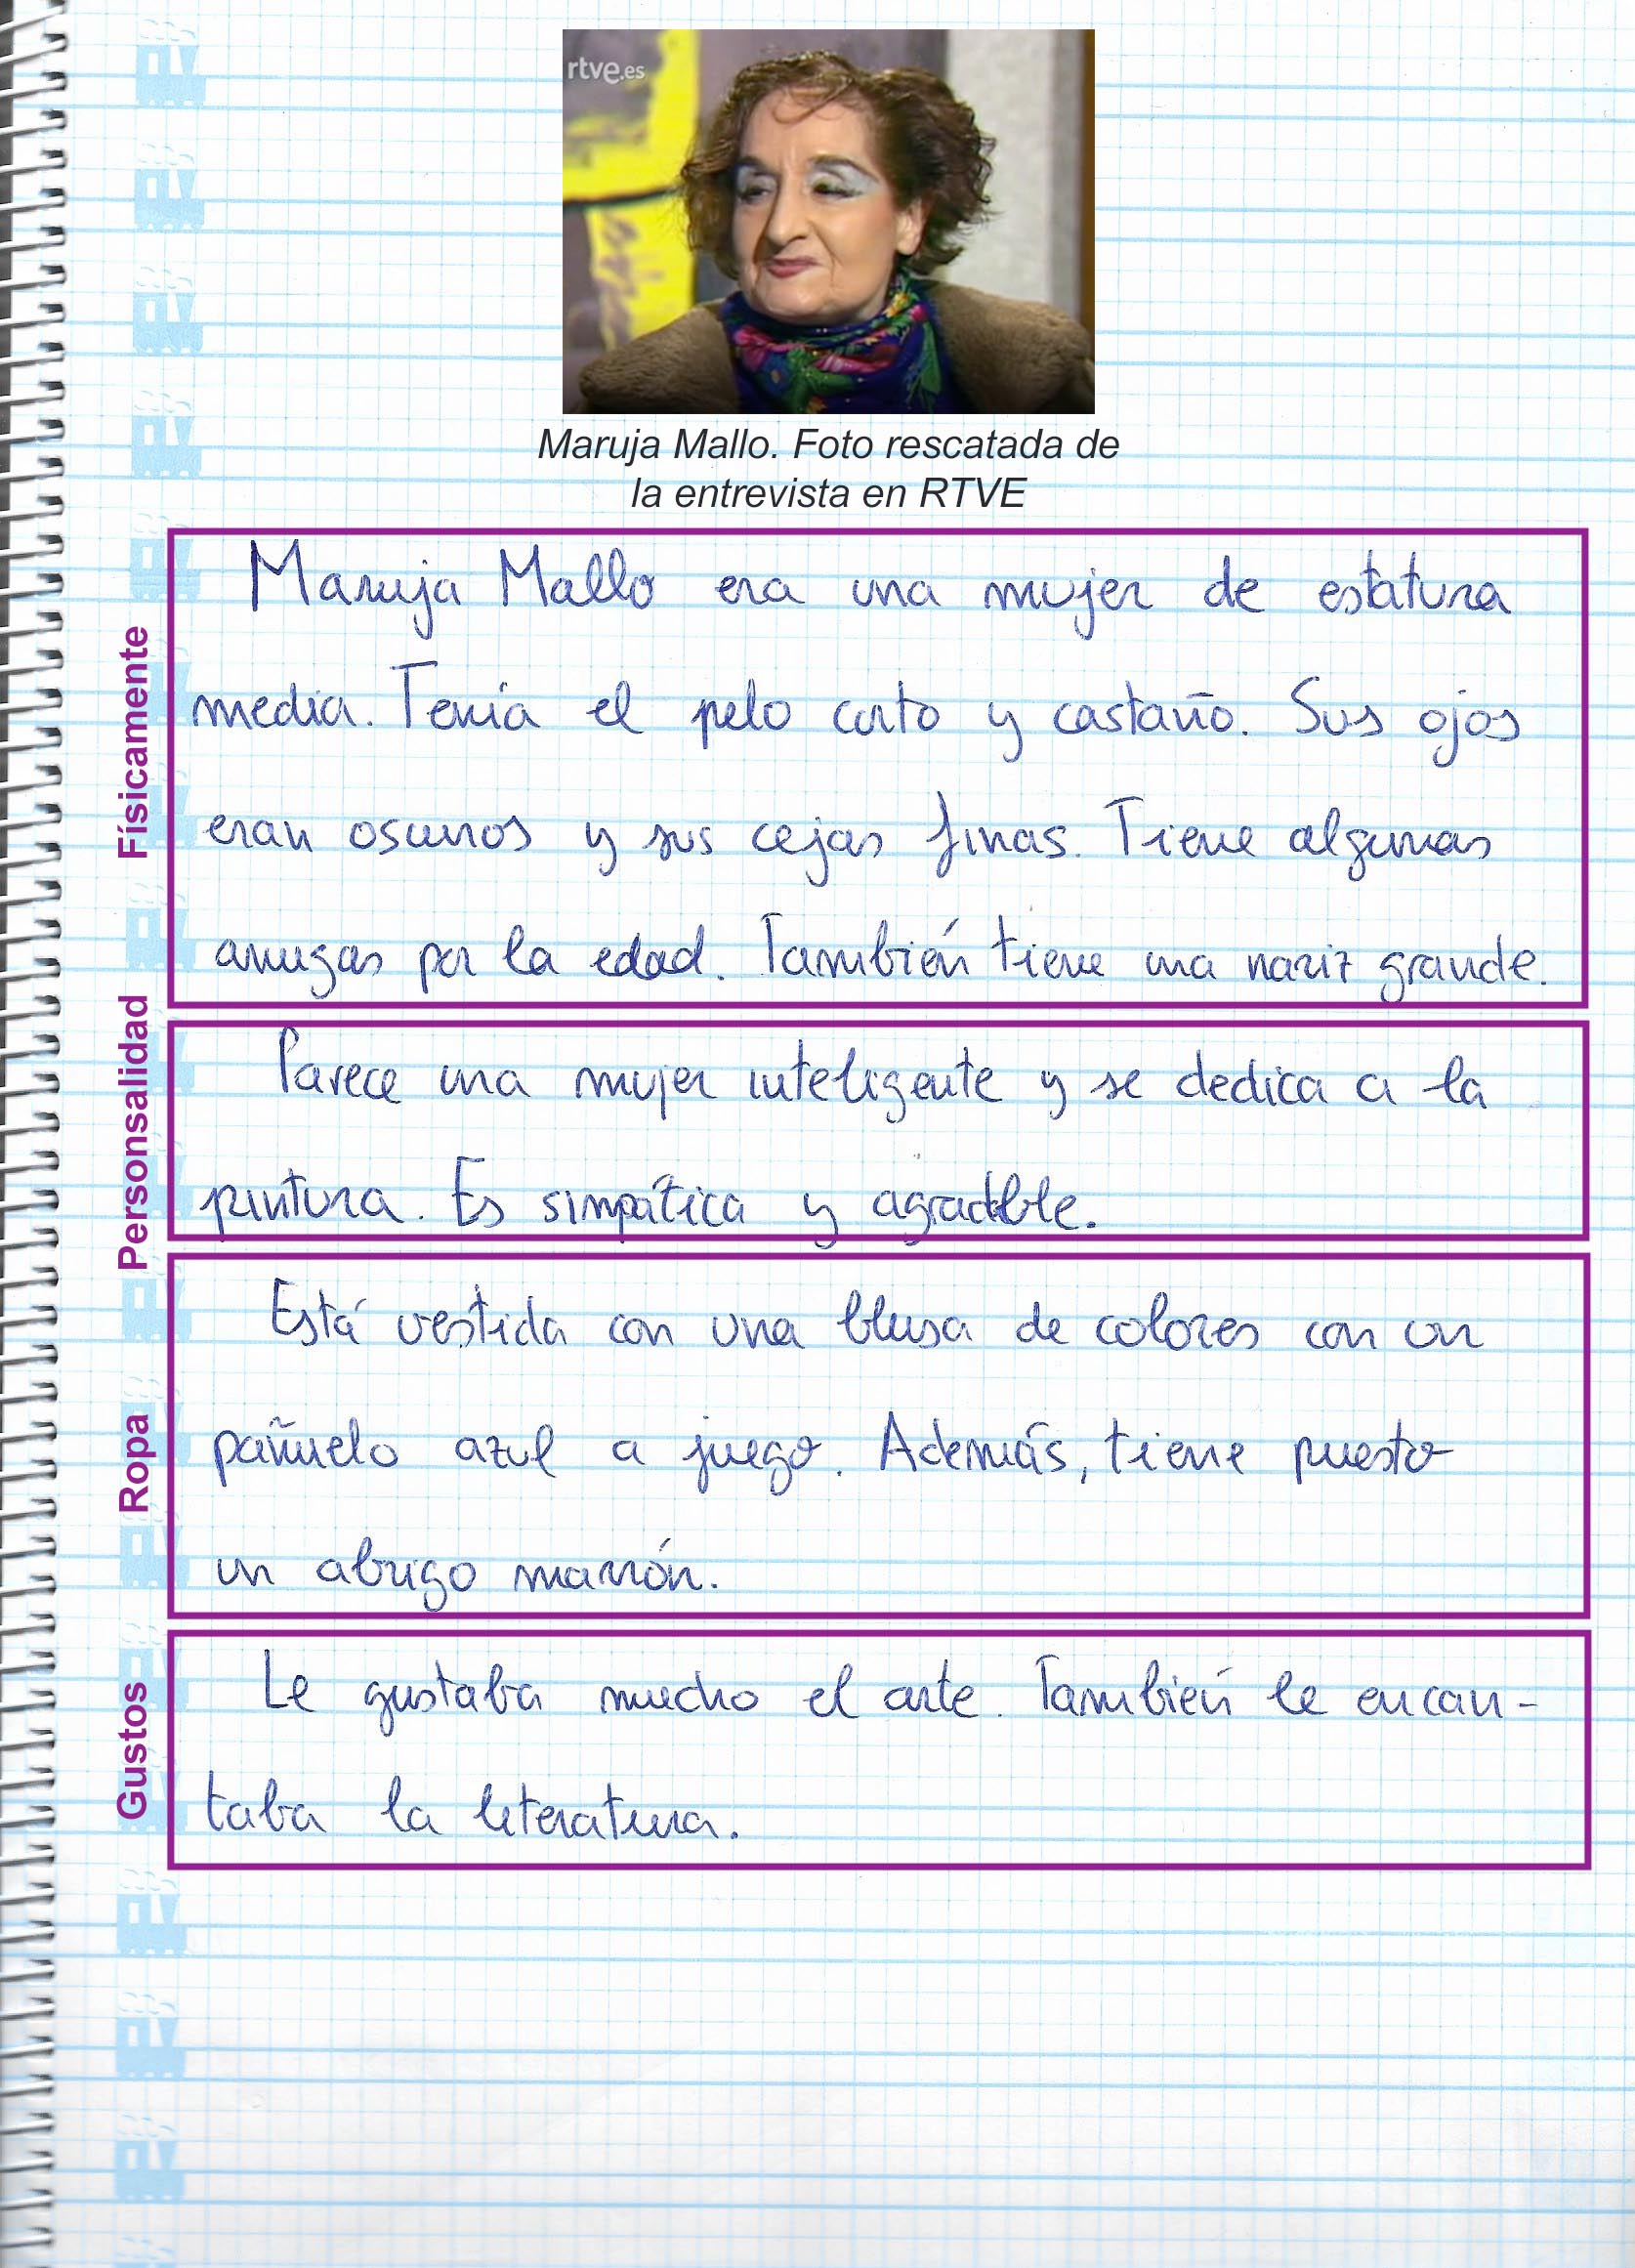 rtve.es
Maruja Mallo. Foto rescatada de
la entrevista en RTVE
Físicamente
Maruja Mallo era una mujer de estatura
media. Tenía el pelo corto y castaño. Sus ojos
eran oscuros y sus cejas finas. Tiene algunas
arrugas por la edad. También tiene una nariz grande.
Personsalidad
Parece una mujer inteligente y se dedica a la
pintura. Es simpática y agradable.
Ropa
Está vestida con una blusa de colores con un
pañuelo azul a juego. Además, tiene puesto
un abrigo marrón.
Gustos
Le gustaba mucho el arte. También le encan-
taba la literatura.